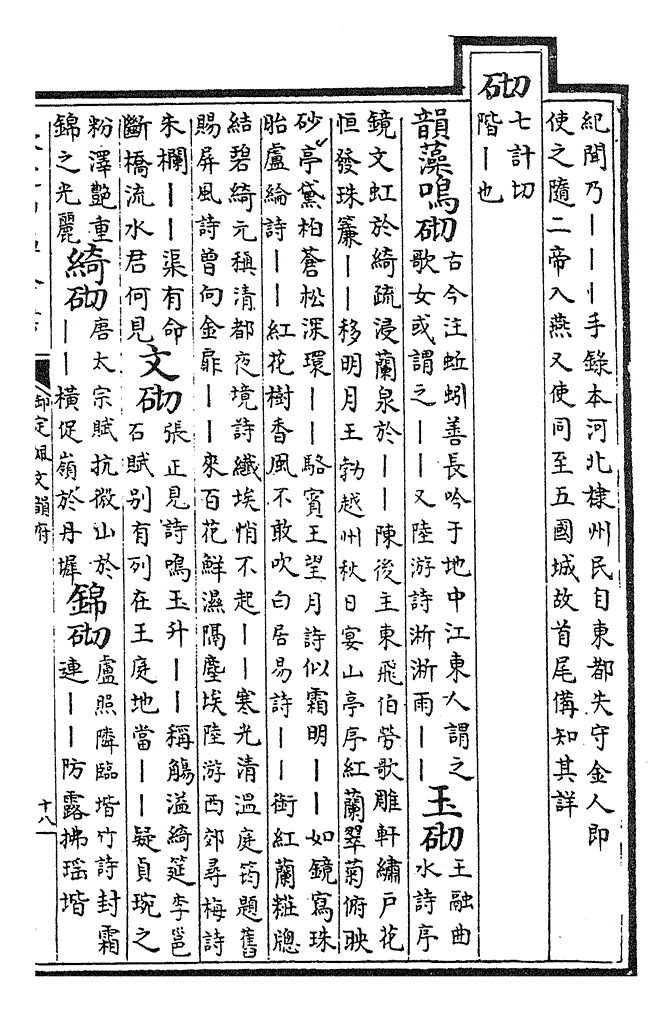 紀聞乃丨丨丨手錄本河北棣州民自東都失守金人即
使之隨二帝入燕又使同至五國城故首尾備知其詳
砌
七計切
階丨也
韻藻
鳴砌
古今注蚯蚓善長吟于地中江東人謂之
歌女或謂之丨丨又陸游詩淅淅雨丨丨
玉砌
王融曲
水詩序
鏡文虹於綺疏浸蘭泉於丨丨陳後主東飛伯勞歌雕軒繡戶花
恒發珠簾丨丨移明月王勃越州秋日宴山亭序紅蘭翠菊俯映
砂亭黛柏蒼松深環丨丨駱賓王望月詩似霜明丨丨如鏡寫珠
胎盧綸詩丨丨紅花樹香風不敢吹白居易詩丨丨銜紅蘭糚牕
結碧綺元稹清都夜境詩纖埃悄不起丨丨寒光清溫庭筠題舊
賜屏風詩曾向金扉丨丨來百花鮮濕隔塵埃陸游西郊尋梅詩
朱欄丨丨渠有命
斷橋流水君何見
文砌
張正見詩鳴玉升丨丨稱觴溢綺筵李邕
石賦别有列在王庭地當丨丨疑貞琬之
粉澤艷重
錦之光麗
綺砌
唐太宗賦抗微山於
丨丨橫促嶺於丹墀
錦砌
盧照隣臨堦竹詩封霜
連丨丨防露拂瑤堦
御定佩文韻府
十八